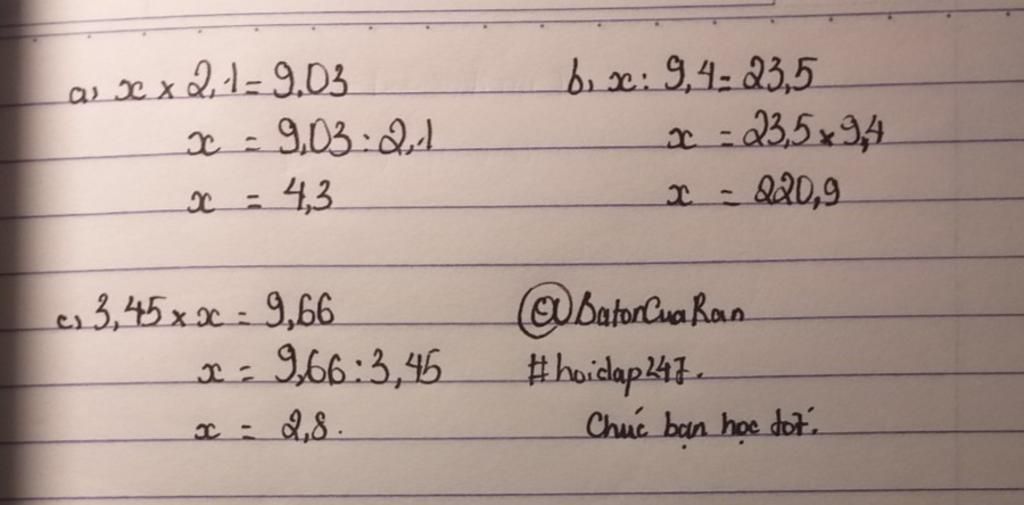 a, x × 2,1 = 9,03
x = 9,03 : 2,1
x = 4,3
b, x : 9,4 = 23,5
x = 23,5 × 9,4
x = 220,9
c, 3,45 × x = 9,66
x = 9,66 : 3,45
x = 2,8.
@BatorCuaRan
#hoidap247.
Chúc bạn học tốt.